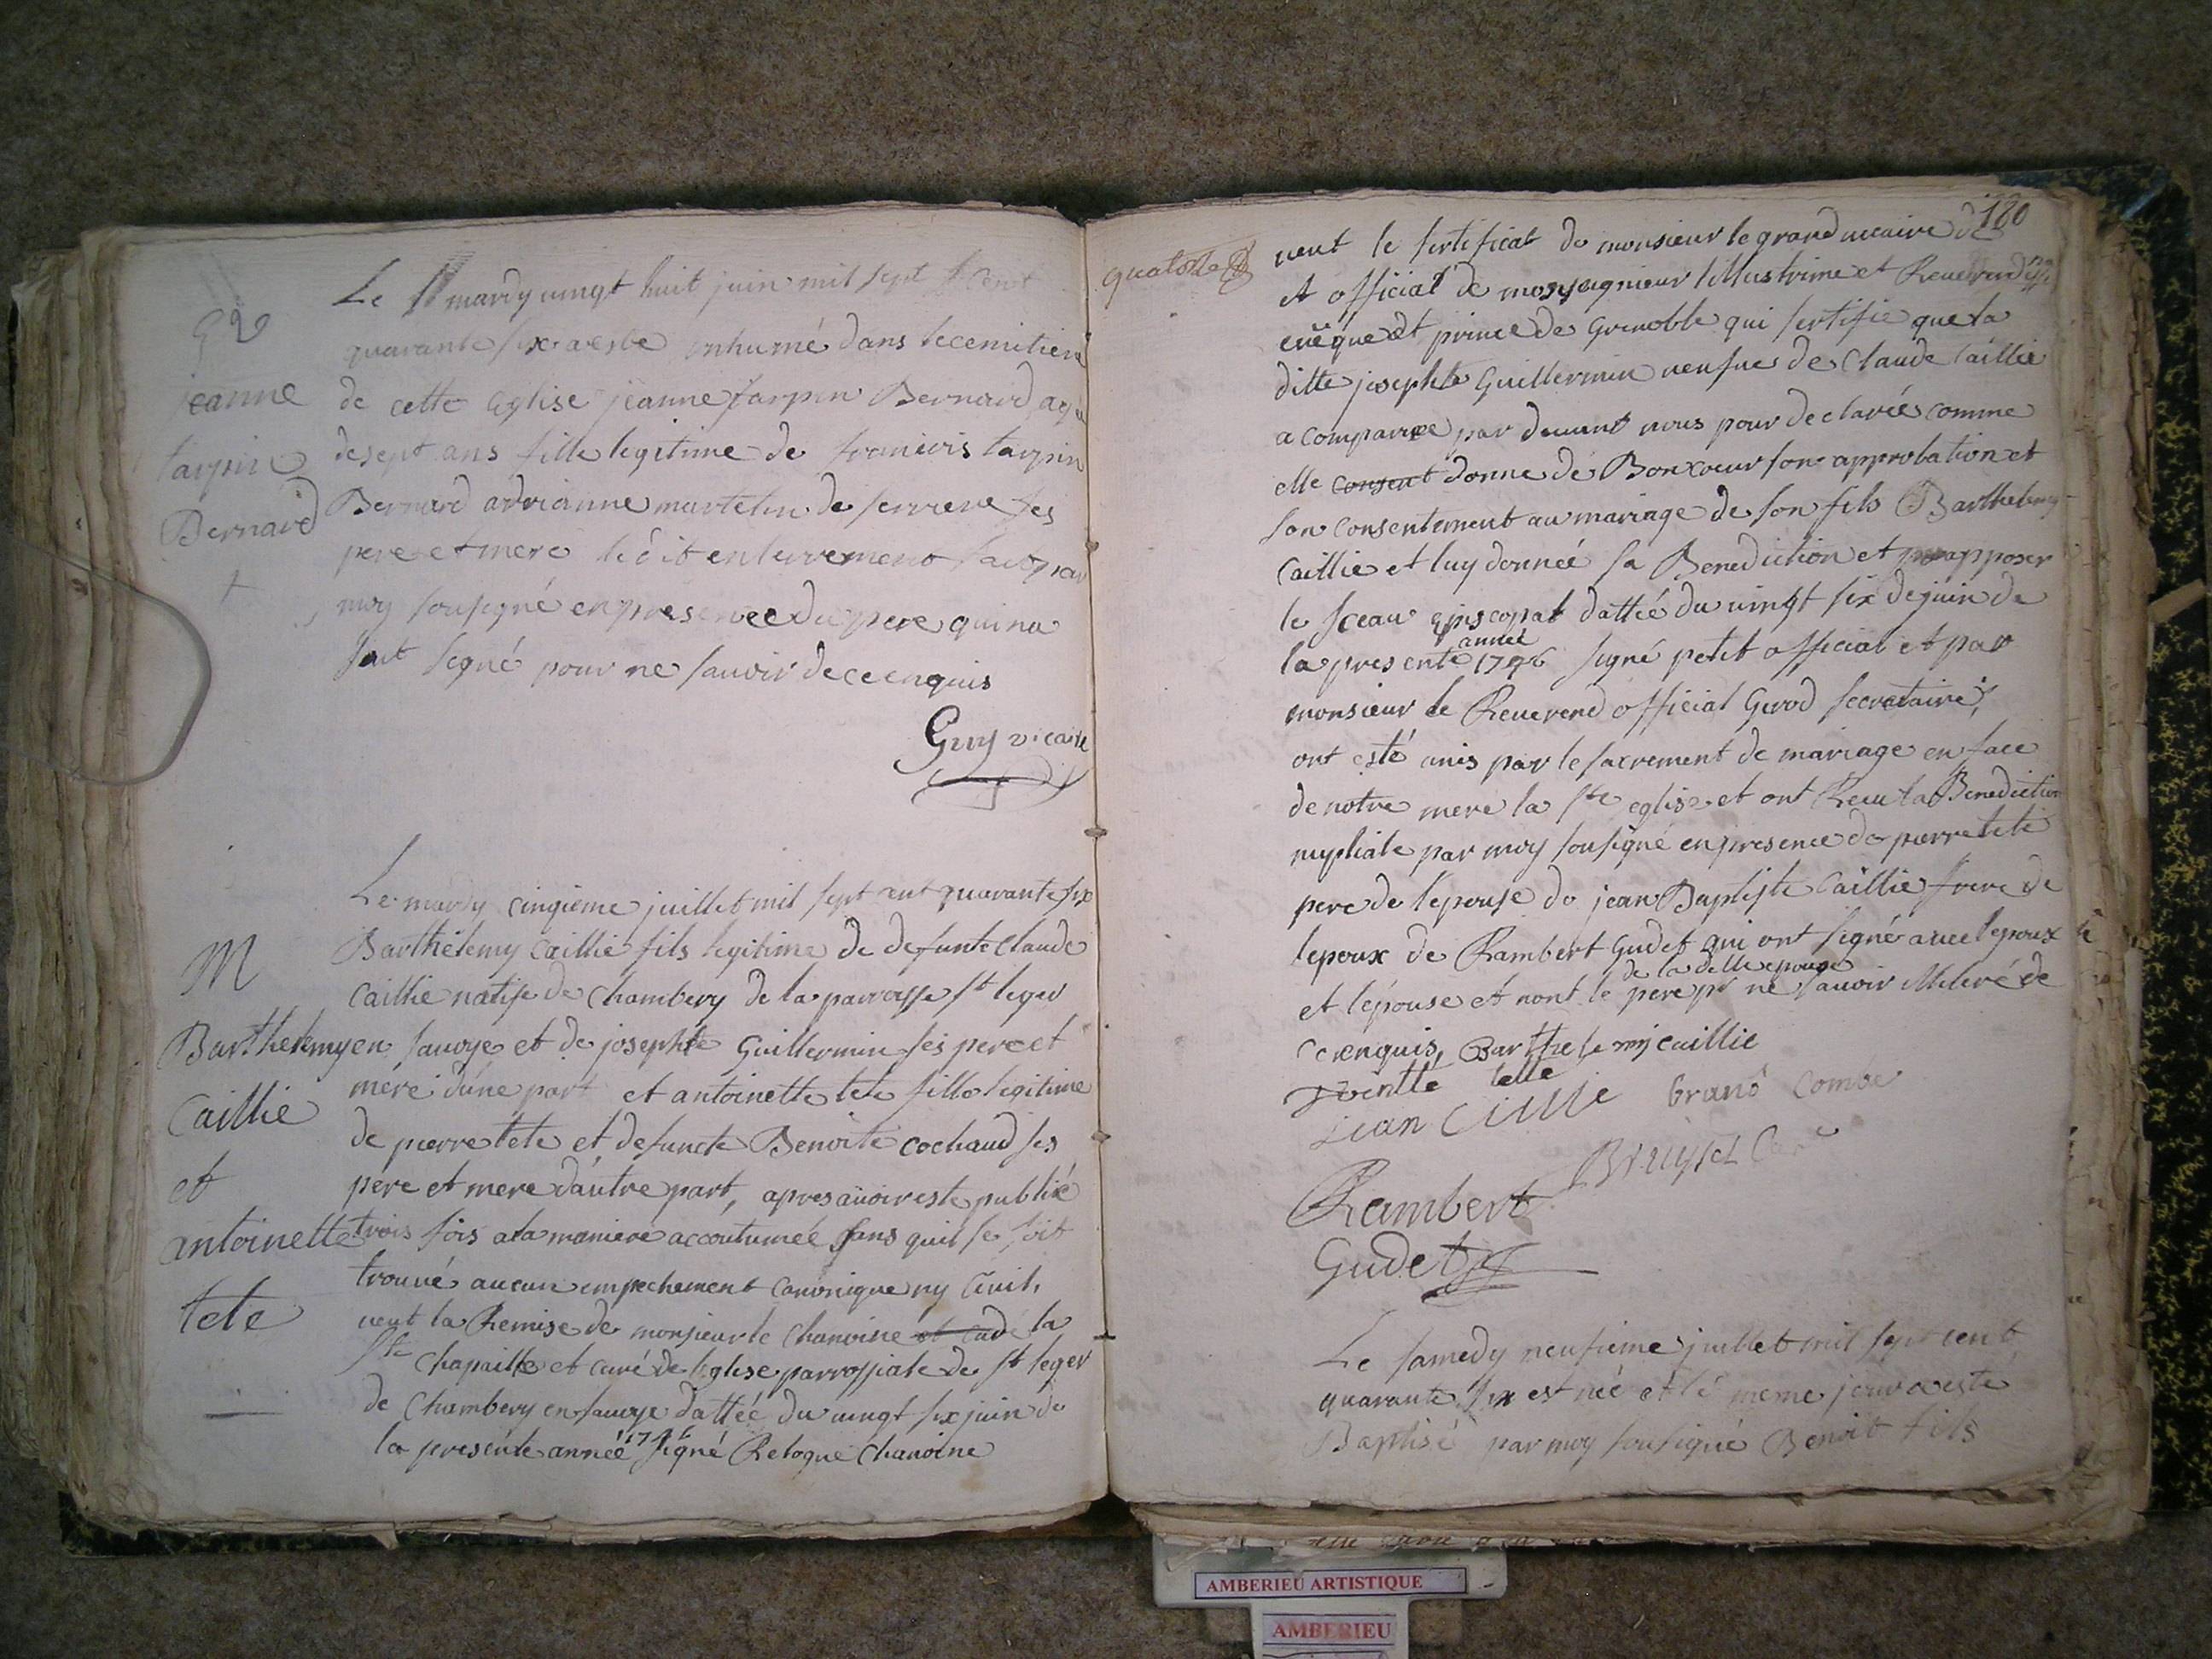 Le mardy vingt huit juin mil sept cent
quarante six a esté inhumé dans le cemitiere
de cette eglise jeanne tarpin Bernard agé
de sept ans fille legitime de francois tarpin
Bernard adrianne martelin de serriere ses
pere et mere le dit enterrement fait par
moy sousigné en presence du pere qui na
sut signé pour ne savoir de ce enquis
Guy vicaire
jeanne
tarpin
Bernard
Le mardy cinqieme juillet mil sept cent quarante six
Barthelemy caillie fils legitime de defunte claude
caillie natife de chambery de la parroisse st leger
en savoye et de josephte Guillermin ses pere et
mere d'une part et antoinette tete fille legitime
de pierre tete et defuncte Benoite cochaud ses
pere et mere d'autre part, apres avoir este publié
trois fois a la maniere accoutumée sans quil se soit
trouvé aucun empechement canonique ny civil,
veut la Remise de monsieur le chanoine et curé la
ste chapaille et curé de leglise parrossiale de st leger
de chambery en savoye dattée du vingt six juin de
la presente année 1746 signé Reloque chanoine
M
Barthelemy
Caillie
et
antoinette
tete
quatorze
180
veut le sertificat de monsieur le grand vicaire de
et official de monseigneur lillustrime et Reverend
evêque et prince de Grenoble qui sertifie que la
ditte josephte Guillermin veufve de Claude Caillie
a comparue par devant nous pour declarée comme
elle consent donne de Bon coeur son approbation et
son consentement au mariage de son fils Barthelemy
Caillie et luy donnée sa Benediction et apposer
le sceau episcopat dattée du vingt six de juin de
la presente année 1746 signé petit official et par
monsieur le Reverend official Gerod secretaire,
ont esté unis par le sacrement de mariage en face
de notre mere la ste eglise et ont Recu la Benediction
nuptiale par moy sousigné en presence de pierre tete
pere de lepouse de jean Baptiste Caillie frere de
lepoux de Rambert Gudet qui ont signé avec lepoux
et lepouse et nont le pere de la ditte epouse pr ne savoir de
ce enquis, Barthelemy caillie
tette
jean Caillie brand combe
Bruyset Curé
Rambert
Gudet
Le samedy neufieme juillet mil sept cent
quarante six est né et le meme jour a esté
Baptisé par moy sousigné Benoit fils
AMBERIEU ARTISTIQUE
AMBERIEU